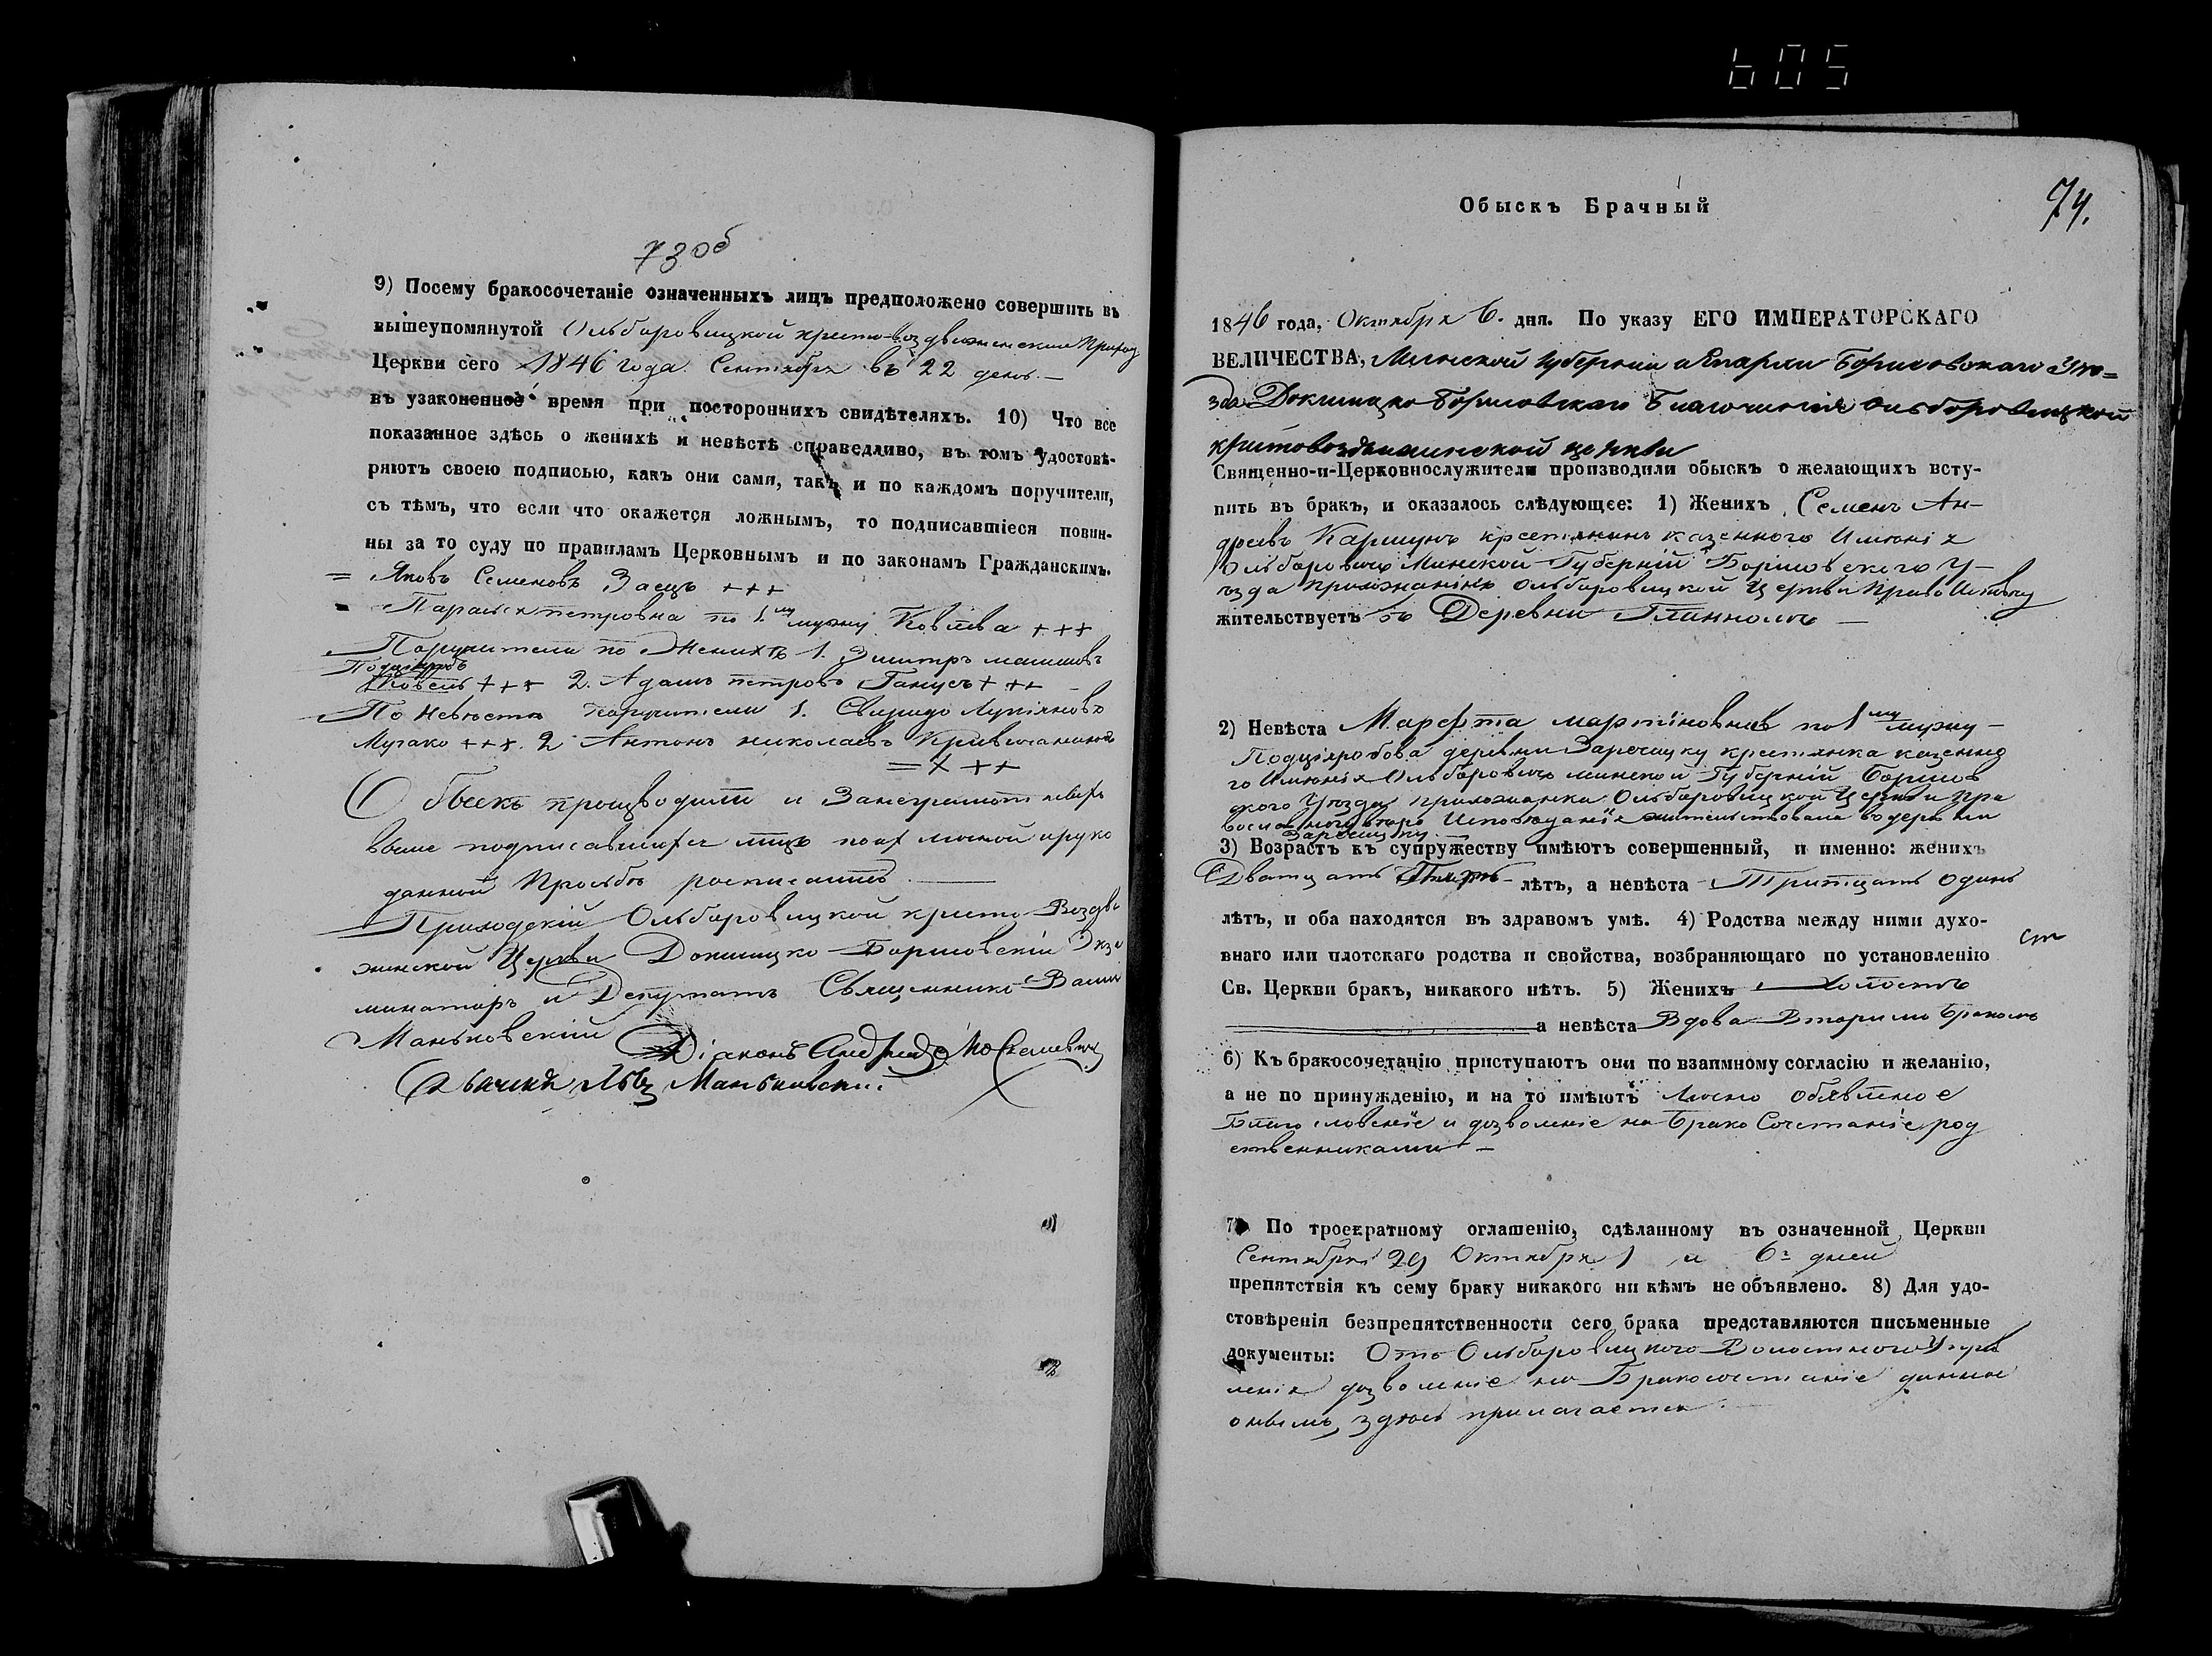 605
73 об
9) Посему бракосочетаніе означенныхъ лицъ предположено совершить въ
вышеупомянутой Ольборовицкой кресто-воздвиженской Приход
Церкви сего 1846 года Сентября въ 22 день. —
въ узаконенное время при постороннихъ свидѣтеляхъ. 10) Что все
показанное здѣсь о женихѣ и невѣстѣ справедливо, въ томъ удостовѣ-
ряютъ своею подписью, какъ они сами, такъ и по каждомъ поручители,
съ тѣмъ, что если что окажется ложнымъ, то подписавшіеся повин-
ны за то суду по правиламъ Церковнымъ и по законамъ Гражданскимъ.
= Яковъ Семеновъ Заецъ +++
Параскя петровна по 1 му мужу +++
Поручители по Женихѣ 1.
+++ 2. Адамъ петровъ Ганусъ +++
По Невѣстѣ поручители 1. Свиридъ Лукіяновъ
+++. 2 Антонъ николаевъ
= + ++
Обыскъ производили и За неграмотныхъ
выше подписавшихся лицъ по их личной и руко
данной Прозьбѣ росписались —
Приходскій Ольборовицкой кресто-Воздви
женской Церкви Докшицко-Борисовскій Экза
минаторъ и Депутатъ Священникъ Васили
Маньковскій
Діаконъ Андрей
Дьячекъ Маньковскій
Обыскъ Брачный
74.
1846 года, Октября 6. дня. По указу ЕГО ИМПЕРАТОРСКАГО
ВЕЛИЧЕСТВА, Минской Губерніи и Епархіи Борисовскаго Уѣ=
зда Докшицко Борисовскаго Благочинія Ольборовицкой
крестовоздвиженской церкви
Священно-и-Церковнослужители производили обыскъ о желающихъ всту-
пить въ бракъ, и оказалось слѣдующее: 1) Женихъ Семенъ Ан-
дреевъ крестянинъ казенного Имѣнія
Ольборовичъ Минской Губерній Борисовского У-
ѣзда прихожанинъ Ольборовицкой Церкви
жительствуетъ въ Деревни Глинномъ —
2) Невѣста Марфта мартиновна по 1 му мужу —
деревни Заречицку крестянка казенно
го Имѣнія Ольборовичъ минской Губерній Борисов
ского Уѣзда прихожанка Ольборовицкой Церкви пра
Исповѣданія жительствовала въ деревни
Заречицку. —
3) Возрастъ къ супружеству имѣютъ совершенный, и именно: женихъ
Дватцать лѣтъ, а невѣста Тритцать одинъ
лѣтъ, и оба находятся въ здравомъ умѣ. 4) Родства между ними духо-
внаго или плотскаго родства и свойства, возбраняющаго по установленію
Св. Церкви бракъ, никакого нѣтъ. 5) Женихъ Холостъ
а невѣста Вдова Вторимъ бракомъ
6) Къ бракосочетанію приступаютъ они по взаимному согласію и желанію,
а не по принужденію, и на то имѣютъ обявленое
Благословеніе и дозволеніе на Брако Сочетаніе род
ственниками —
7) По троекратному оглашенію, сдѣланному въ означенной Церкви
Сентября 29 Октября 1 и 6 дней
препятствія къ сему браку никакого ни кѣмъ не объявлено. 8) Для удо-
стовѣренія безпрепятственности сего брака представляются письменные
документы: Отъ Ольборовицкого Волостного Управ
ленія дозволеніе на Бракосочетаніе данное
здѣсь прилагается.